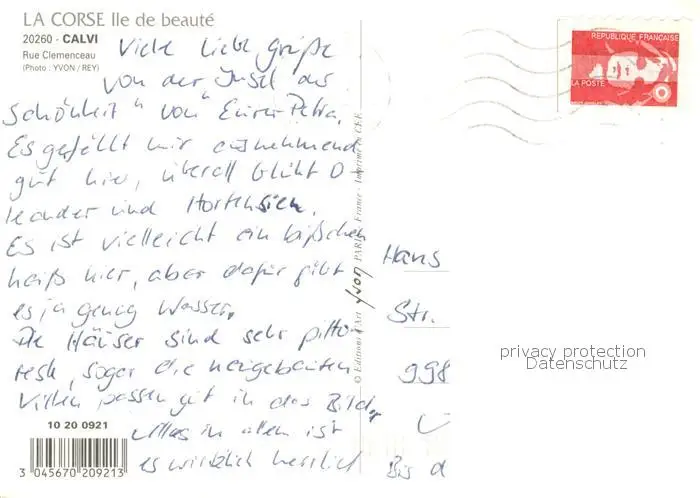 LA CORSE Ile de beauté
20260 - CALVI
Rue Clemenceau
(Photo : YVON / REY)
Viele liebe Grüße
von der „Insel der
Schönheit" von Eurer Petra.
Es gefällt mir ausnehmend
gut hier, überall blüht O-
leander und Hortensien.
Es ist vielleicht ein bißchen
heiß hier, aber dafür gibt
es ja genug Wasser.
Die Häuser sind sehr pitto-
resk, sogar die neugebauten
Villen passen gut in das Bild,
alles in allem ist
es wirklich herrlich
10 20 0921
3 045670 209213
© Editions d'Art yvon PARIS France - Imprimé en CEE
REPUBLIQUE FRANÇAISE
LA POSTE
Hans
Str.
998
Bis d
privacy protection
Datenschutz